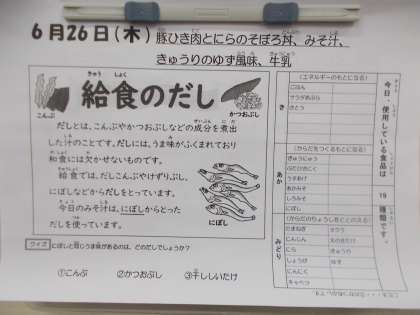 6月26日(木)豚ひき肉とにらのそぼろ丼、みそ汁、
きゅうりのゆず風味、牛乳
給食のだし
きゅう しょく
こんぶ
かつおぶし
だしとは、こんぶやかつおぶしなどの成分を煮出
した汁のことです。だしには、うま味がふくまれており
和食には欠かせないものです。
給食では、だしこんぶやけずりぶし、
にぼしなどからだしをとっています。
今日のみそ汁は、にぼしからとった
だしを使っています。
にぼし
クイズ
にぼしと同じうま味があるのは、どのだしでしょうか?
①こんぶ ②かつおぶし ③干ししいたけ
今日、使用している食品は 19 種類です。
き
(エネルギーのもとになる)
ごはん
サラダあぶら
さとう
あか
(からだをつくるもとになる)
ぎゅうにゅう
ぶたひきにく
あかみそ
しろみそ
にぼし
みどり
(からだのちょうしをととのえる)
たまねぎ
にんじん
えのきたけ
にら
きゅうり
しょうが
ゆず
にんにく
キャベツ